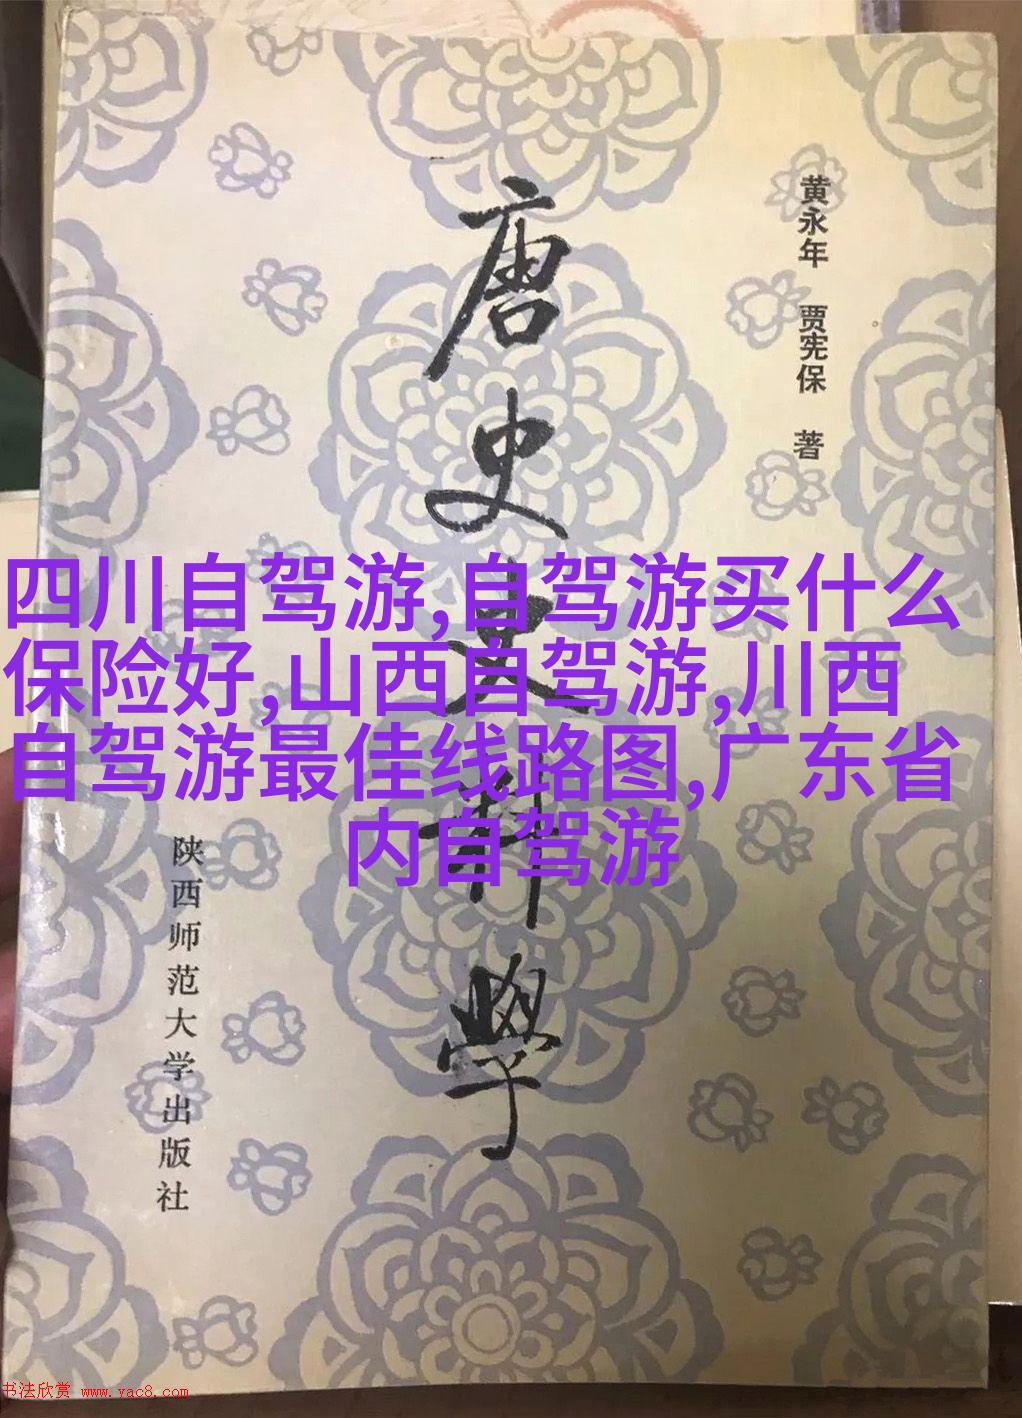 黄永年 贾宪保 著
唐史史料学
四川自驾游,自驾游买什么
保险好,山西自驾游,川西
自驾游最佳线路图,广东省
内自驾游
陕西师范大学出版社
书法欣赏 www.yac8.com